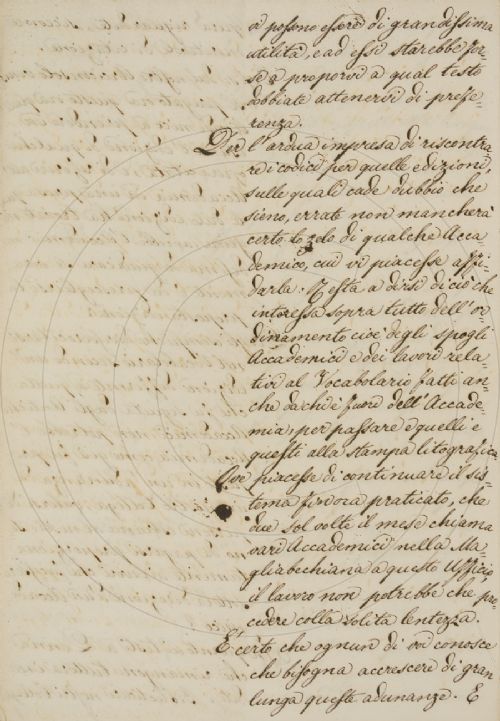 vi possono essere di grandissima
utilità, e ad essi starebbe for=
se a proporvi a qual testo
dobbiate attenervi di prefe=
renza.
Per l'ardua impresa di riscontra
re i codici per quelle edizioni,
sulle quali cade dubbio che
sieno, errate non mancherà
certo lo zelo di qualche Acca=
demico, cui vi piacesse affi=
darla. Resta a dirsi di ciò che
interessa sopra tutto dell'or=
dinamento cioè degli spogli
Accademici e dei lavori rela=
tivi al Vocabolario fatti an=
che da chi è fuori dell'Accade=
mia, per passare e quelli e
questi alla stampa litografica.
Ove piacesse di continuare il sis=
tema finora praticato, che
due sol volte il mese chiama
varj Accademici nella Ma=
gliabechiana a questo Ufficio,
il lavoro non potrebbe che pro=
cedere colla solita lentezza.
E' certo che ognun di voi conosce
che bisogna accrescere di gran
lunga queste adunanze. E